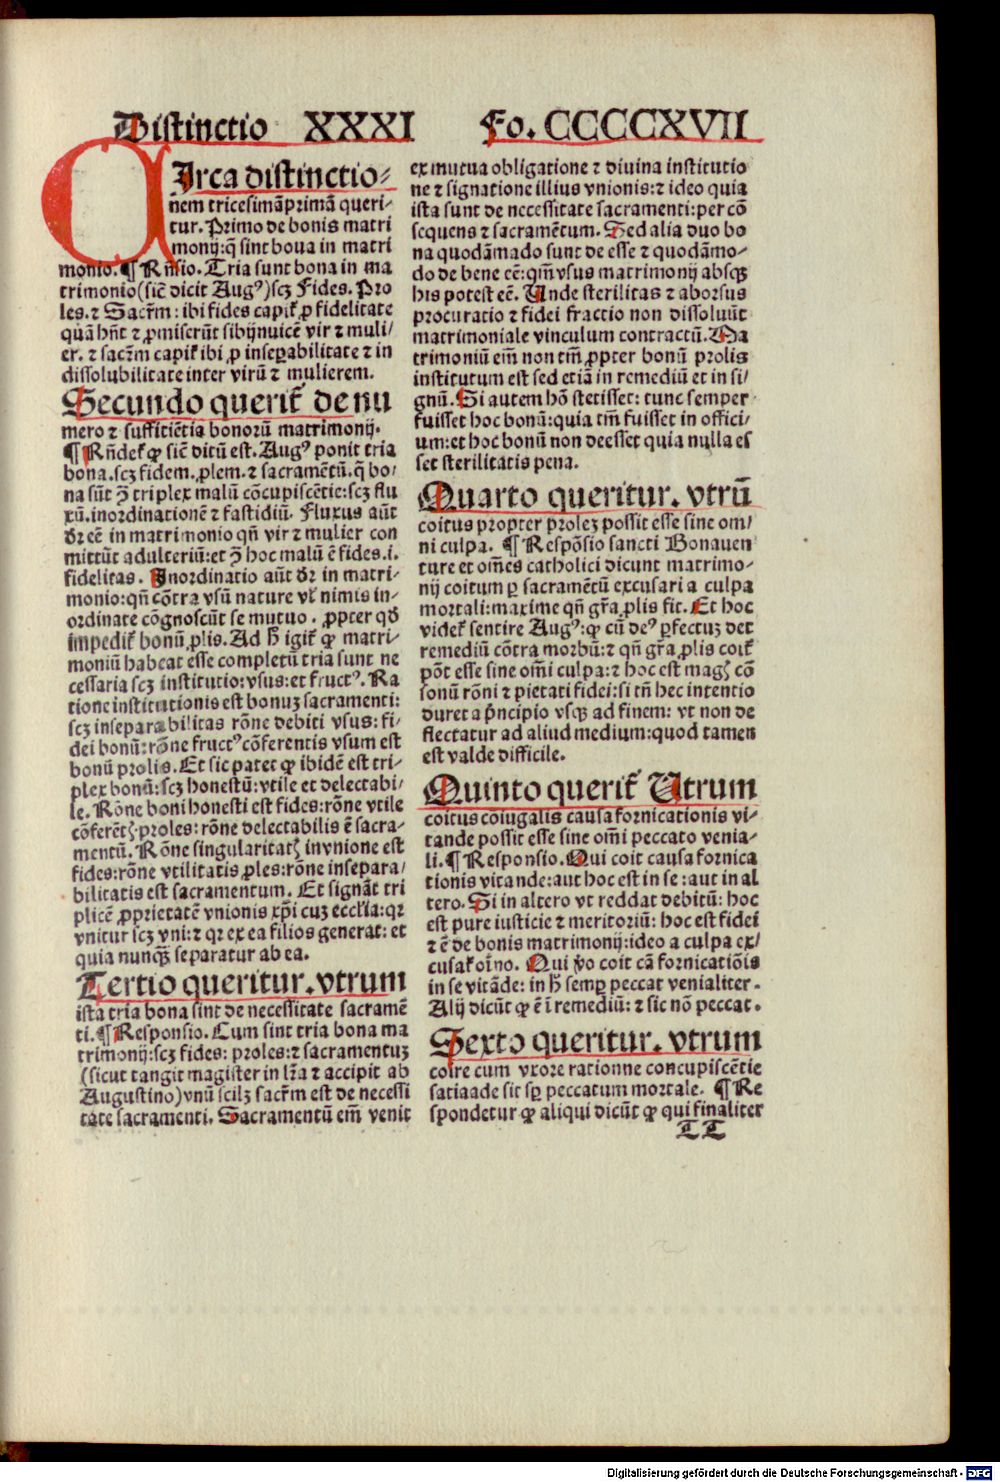 Distinctio XXXI Fo. CCCCCXVII
CIrca distinctio⸗
nem tricesimã primã queri⸗
tur. Primo de bonis matri
monij: q̃ sint boua in matri
monio. ¶ Rñsio. Tria sunt bona in ma
trimonio (sicẽ dicit Augꝰ) scꝫ Fides. Pro
les. ⁊ Sacr̃m: ibi fides capit᷑ ꝓ fidelitate
quã hñt ⁊ ꝓmiserũt sibijnuicẽ vir ⁊ muli/
er. ⁊ sacr̃m capit᷑ ibi ꝓ inseꝑabilitate ⁊ in
dissolubilitate inter virũ ⁊ mulierem.
Secundo querit᷑ de nu
mero ⁊ sufficiẽtia bonorũ matrimonij.
¶ Rñdet᷑ ꝙ sicẽ dictũ est. Augꝰ ponit tria
bona. scꝫ fidem. ꝓlem. ⁊ sacramẽtũ. q̃ bo/
na sũt ꝯ̃ triplex malũ cõcupiscẽtie: scꝫ flu
xũ. inordinationẽ ⁊ fastidiũ. Fluxus aũt
dr̃ eẽ in matrimonio qñ vir ⁊ mulier con
mittũt adulteriũ: et ꝯ̃ hoc malũ ẽ fides .i.
fidelitas. Inordinatio aũt dr̃ in matri⸗
monio: qñ cõtra vsũ nature vl̃ nimis in⸗
ordinate cõgnoscũt se mutuo. ꝓpter qď
impedit᷑ bonũ ꝓlis. Ad h̃ igit᷑ ꝙ matri⸗
moniũ habeat esse completũ tria sunt ne
cessaria scꝫ institutio: vsus: et fructꝰ. Ra
tione institutionis est bonuꝫ sacramenti:
scꝫ inseparabilitas rõne debiti vsus: fi⸗
dei bonũ: rõne fructꝰ cõferentis vsum est
bonũ prolis. Et sic patet ꝙ ibidẽ est tri⸗
plex bonũ: scꝫ honestũ: vtile et delectabi/
le. Rõne boni honesti est fides: rõne vtile
cõferẽtꝭ proles: rõne delectabilis ẽ sacra⸗
mentũ. Rõne singularitatꝭ in vnione est
fides: rõne vtilitatis ꝓles: rõne insepara/
bilitatis est sacramentum. Et signãt tri
plicẽ ꝓprietatẽ vnionis xp̃i cuꝫ ecclĩa: qꝛ
vnitur scꝫ vni: ⁊ qꝛ ex ea filios generat: et
quia nunqꝫ̃ separatur ab ea.
Tertio queritur. vtrum
ista tria bona sint de necessitate sacramẽ
ti. ¶ Responsio. Cum sint tria bona ma
trimonij: scꝫ fides: proles: ⁊ sacramentuꝫ
(sicut tangit magister in lr̃a ⁊ accipit ab
Augustino) vnũ scilꝫ sacr̃m est de necessi
tate sacramenti. Sacramentũ em̃ venit
ex mutua obligatione ⁊ divina institutio
ne ⁊ signatione illius vnionis: ⁊ ideo quia
ista sunt de necessitate sacramenti: per cõ
sequens ⁊ sacramẽtum. Sed alia duo bo
na quodãmodo sunt de esse ⁊ quodãmo⸗
do de bene eẽ: qm̃ vsus matrimonij absqꝫ
his potest eẽ. Unde sterilitas ⁊ aborsus
procuratio ⁊ fidei fractio non dissoluũt
matrimoniale vinculum contractũ. Ma
trimoniũ em̃ non tm̃ ꝓpter bonũ prolis
institutum est sed etiã in remediũ et in si/
gnũ. Si autem hõ stetisset: tunc semper
fuisset hoc bonũ: quia tm̃ fuisset in offici⸗
um: et hoc bonũ non deesset quia nulla es
set sterilitatis pena.
Quarto queritur. vtrũ
coitus propter proleꝫ possit esse sine om/
ni culpa. ¶ Respõsio sancti Bonauen
ture et om̃es catholici dicunt matrimo⸗
nij coitum ꝑ sacramẽtũ excusari a culpa
mortali: maxime qñ gr̃a ꝓlis fit. Et hoc
videt᷑ sentire Augꝰ: ꝙ cũ deꝰ ꝑfectuꝫ det
remediũ cõtra morbũ: ⁊ qñ gr̃a ꝓlis coit᷑
põt esse sine om̃i culpa: ⁊ hoc est magꝭ cõ
sonũ rõni ⁊ pietati fidei: si tñ hec intentio
duret a p̃ncipio vsqꝫ ad finem: vt non de
flectatur ad aliud medium: quod tamen
est valde difficile.
Quinto querit᷑ Utrum
coitus cõiugalis causa fornicationis vi⸗
tande possit esse sine om̃i peccato venia⸗
li. ¶ Responsio. Qui coit causa fornica
tionis vitande: aut hoc est in se: aut in al
tero. Si in altero vt reddat debitũ: hoc
est pure iusticie ⁊ meritoriũ: hoc est fidei
⁊ ẽ de bonis matrimonij: ideo a culpa ex/
cusat᷑ oĩno. Qui ṽo coit cã fornicatiõis
in se vitãde: in h̃ semꝑ peccat venialiter.
Alij dicũt ꝙ ẽ ĩ remediũ: ⁊ sic nõ peccat.
Sexto queritur. vtrum
coire cum vxore rationne concupiscẽtie
satiaade sit sꝑ peccatum mortale. ¶ Re
spondetur ꝙ aliqui dicũt ꝙ qui finaliter
TT
Digitalisierung gefördert durch die Deutsche Forschungsgemeinschaft - DFG